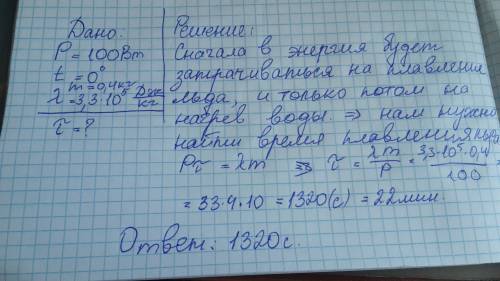 Дано:
P = 100Вт
t = 0°
m = 0,4кг
λ = 3,3·10⁵ Дж/кг
τ = ?
Решение:
Сначала в энергия будет
затрачиваться на плавление
льда, и только потом на
нагрев воды ⇒ нам нужно
найти время плавления льда
Pτ = λm ⇒ τ = λm/P = 3,3·10⁵·0,4/100 =
= 33·4·10 = 1320(с) = 22мин.
Ответ: 1320с.